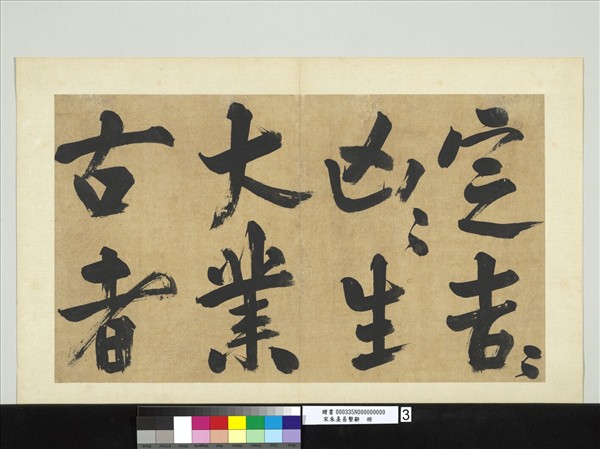 定吉〻
凶〻生
大業
古者
贈書 000335N000000000
宋朱熹易繫辭 冊
3